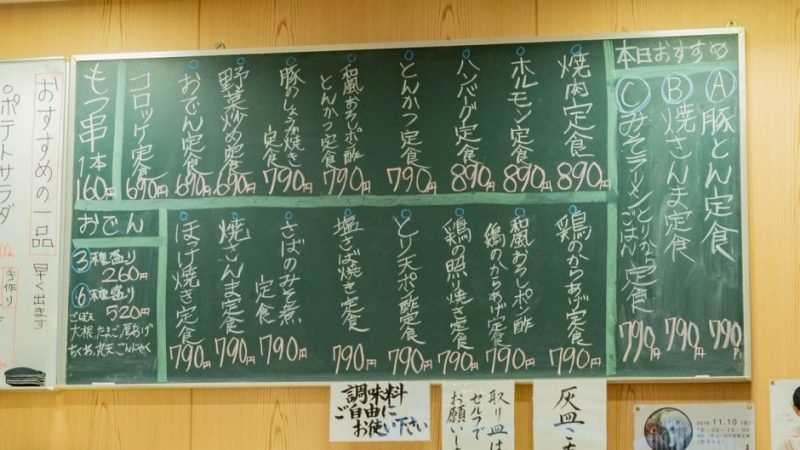 本日おすすめ
Ⓐ 豚とん定食 790円
Ⓑ 焼さんま定食 790円
Ⓒ みそラーメン とりから ごはん 定食 790円
焼肉定食 890円
ホルモン定食 890円
ハンバーグ定食 890円
とんかつ定食 790円
和風おろしポン酢
とんかつ定食 790円
豚のしょうが焼き
定食 790円
野菜炒め定食 690円
おでん定食 690円
コロッケ定食 690円
もつ串
1本
160円
鶏のからあげ定食 790円
和風おろしポン酢
鶏のからあげ定食 790円
鶏の照り焼き定食 790円
とり天ポン酢定食 790円
塩さば焼き定食 790円
さばのみそ煮
定食 790円
焼さんま定食 790円
ほっけ焼き定食 790円
おでん
③種盛り
260円
⑥種盛り
520円
ごぼ天
大根、たまご、厚あげ
ちくわ、丸天、こんにゃく
おすすめの一品
早く出ます
ポテトサラダ
手作り
調味料
ご自由に
お使い下さい
取り皿は
セルフで
お願いし
灰皿こち
2018 11.10
10:00～16:00